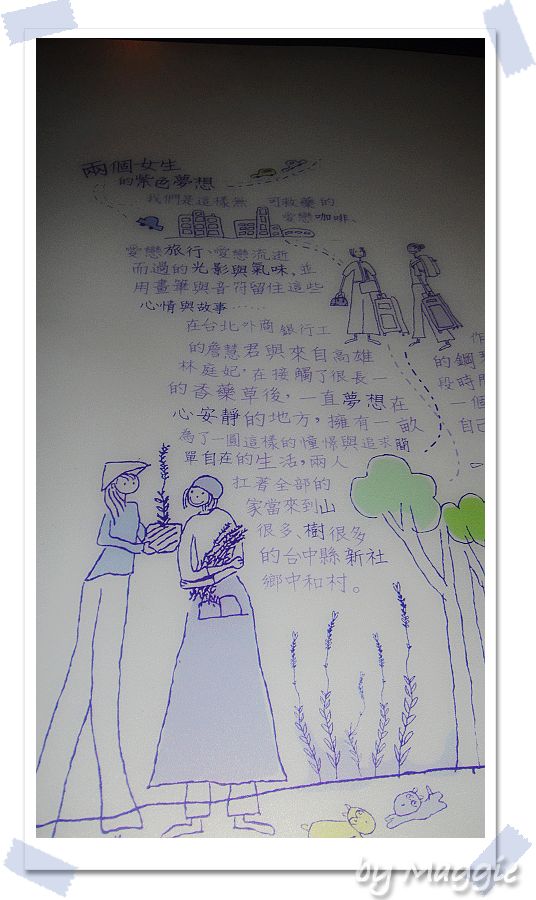 兩個女生
的紫色夢想
我們是這樣無 可救藥的
愛戀咖啡、
愛戀旅行、愛戀流逝
而過的光影與氣味,並
用畫筆與音符留住這些
心情與故事……
在台北外商 銀行工 作
的詹慧君與來自高雄 的鋼琴
林庭妃,在接觸了很長一 段時間
的香藥草後,一直夢想在 一個
心安靜的地方,擁有一畝 自己
為了一圓這樣的憧憬與追求簡
單自在的生活,兩人
扛著全部的
家當來到山
很多、樹很多
的台中縣新社
鄉中和村。
by Maggie